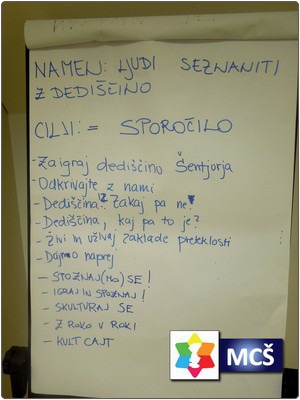 NAMEN: LJUDI SEZNANITI
Z DEDIŠČINO
CILJI: = SPOROČILO
- Zaigraj dediščino Šentjurja
- Odkrivajte z nami
- Dediščina? Zakaj pa ne?
- Dediščina, kaj pa to je?
- Živi in uživaj zaklade preteklosti
- Dajmo naprej
- SPOZNAJ(MO) SE!
- IGRAJ IN SPOZNAJ!
- SKULTURAJ SE
- Z ROKO V ROKI
- KULT CAJT
MCŠ